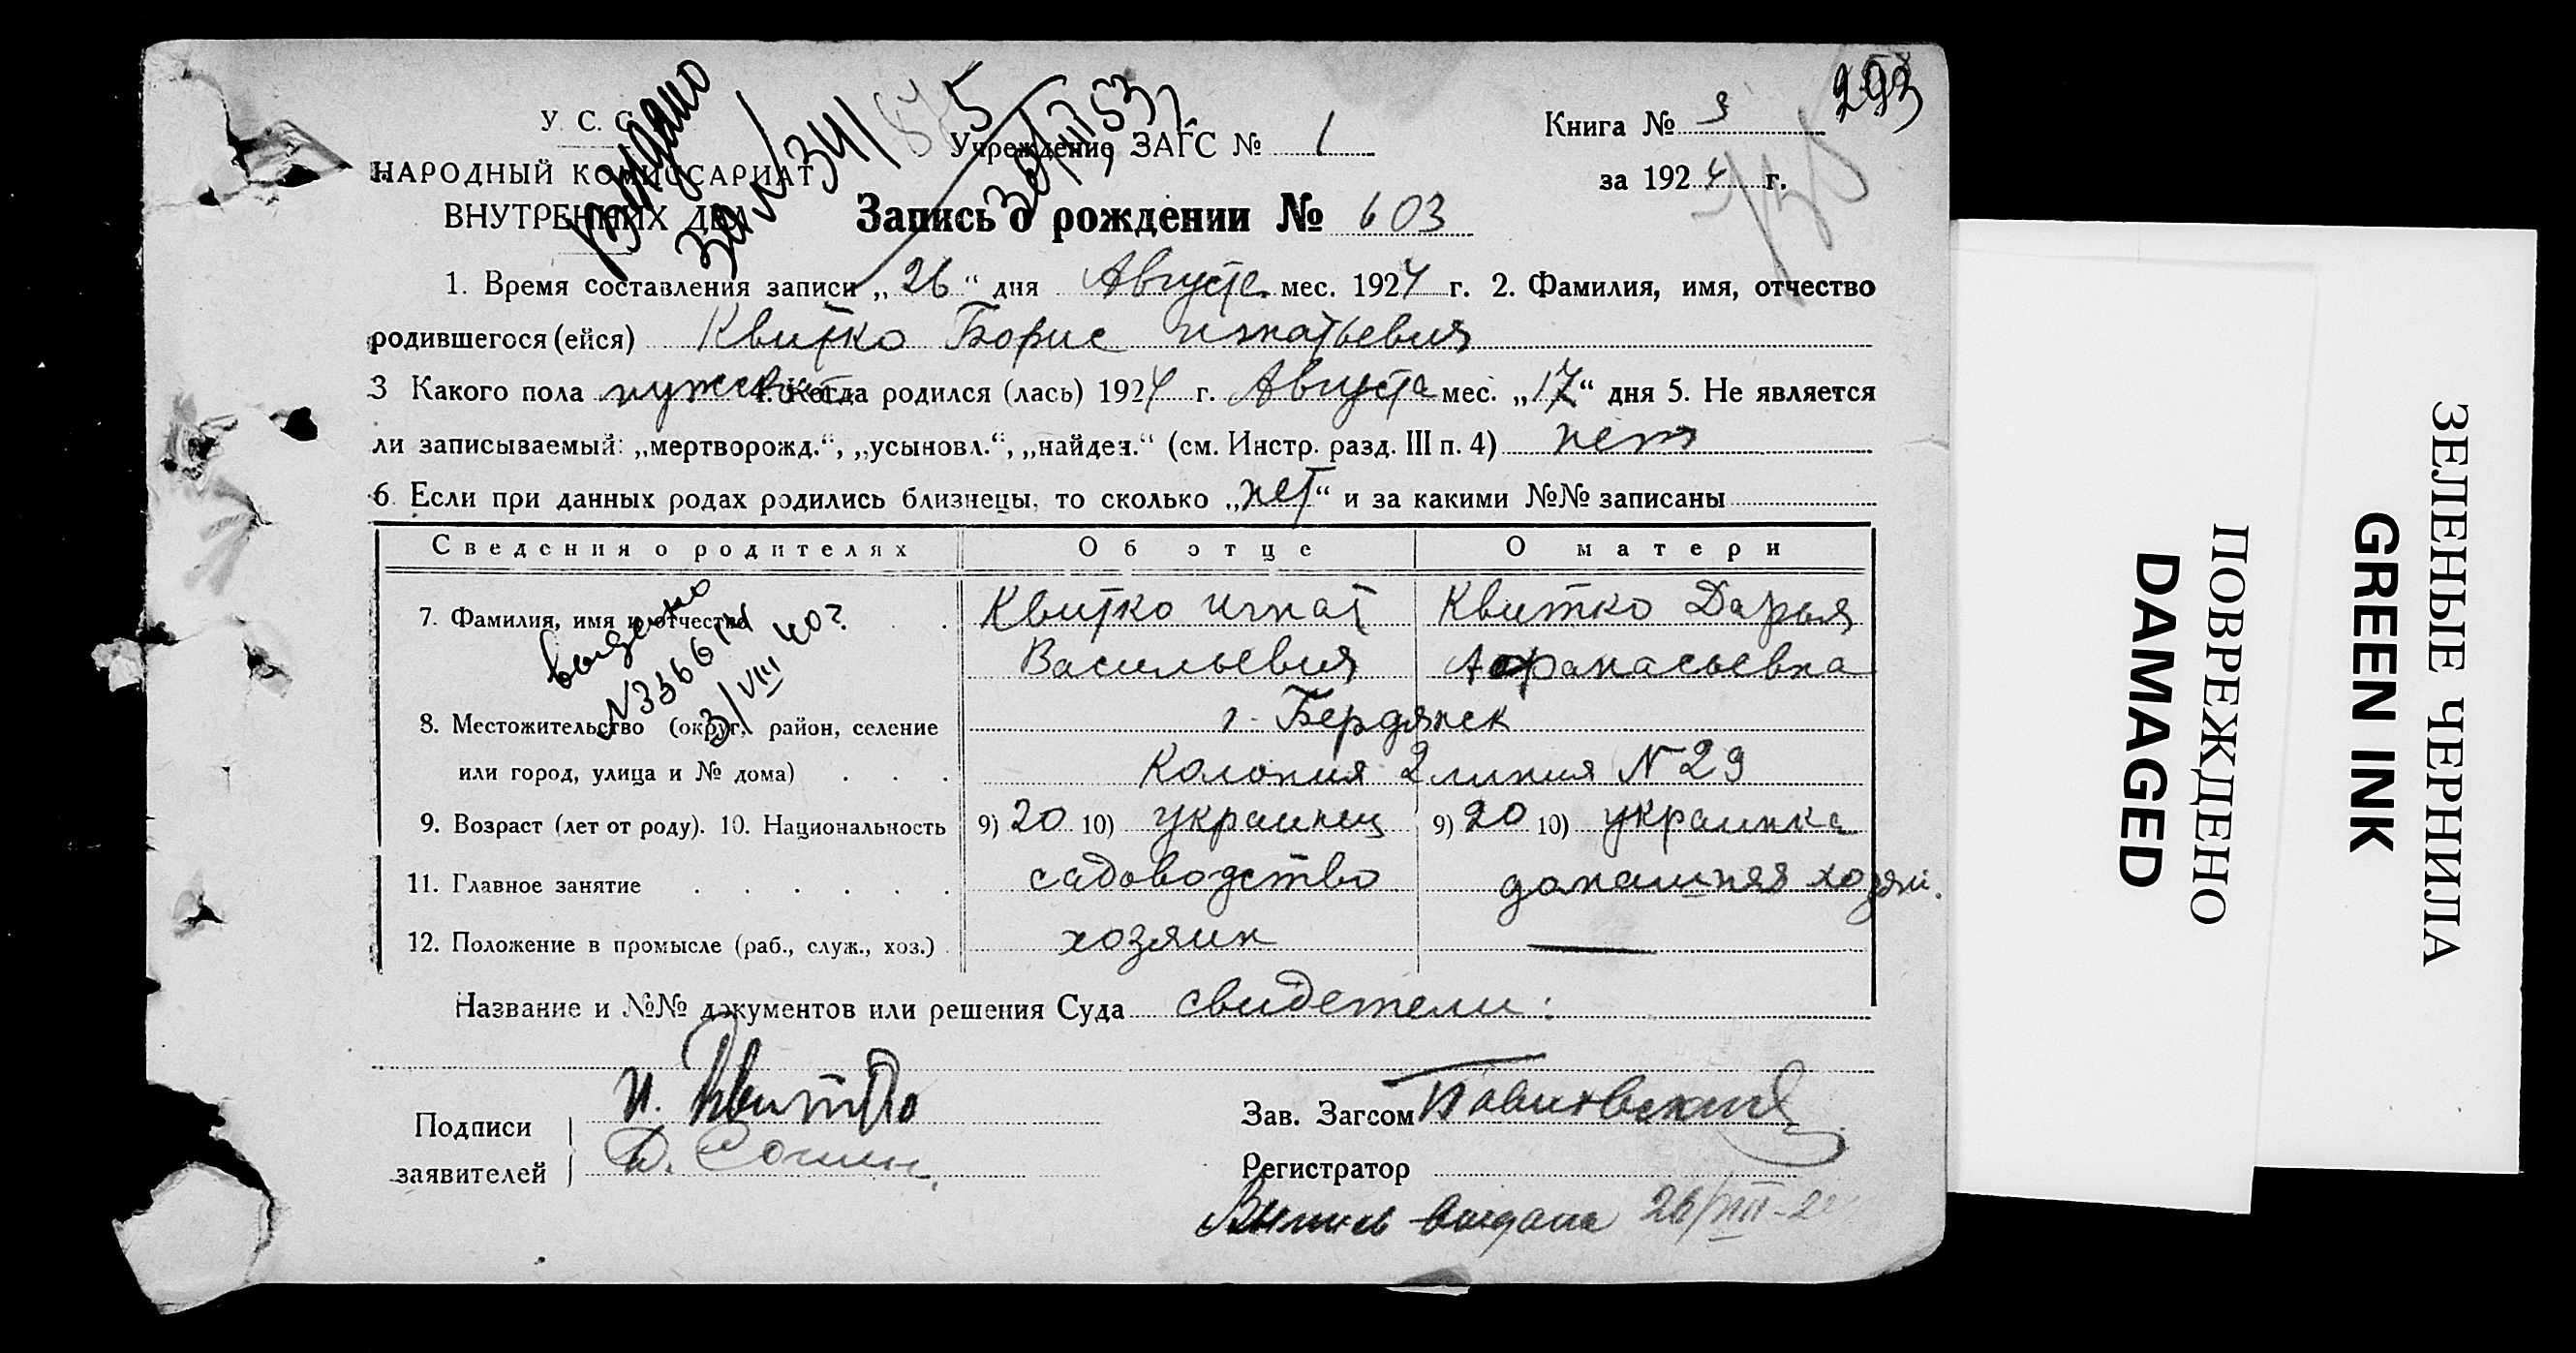 293
У. С. С.
Учреждение ЗАГС № 1
Книга № 3
НАРОДНЫЙ КОМИССАРИАТ
за 1924 г.
ВНУТРЕННИХ ДЕЛ
Запись о рождении № 603
1. Время составления записи „26“ дня Августа мес. 1924 г. 2. Фамилия, имя, отчество
родившегося (ейся) Квитко Борис Игнатьевич
3 Какого пола мужского 4. Когда родился (лась) 1924 г. Августа мес. „17“ дня 5. Не является
ли записываемый: „мертворожд.“, „усыновл.“, „найден.“ (см. Инстр. разд. III п. 4) нет
6. Если при данных родах родились близнецы, то сколько „нет“ и за какими №№ записаны
Сведения о родителях Об отце О матери
7. Фамилия, имя и отчество Квитко Игнат Квитко Дарья
Васильевич Афанасьевна
выдано
3/VIII 40 г.
8. Местожительство (округ, район, селение г. Бердянск
или город, улица и № дома) Колония 2 линия N 29
9. Возраст (лет от роду). 10. Национальность 9) 20 10) украинец 9) 20 10) украинка
11. Главное занятие садоводство домашняя хозяй.
12. Положение в промысле (раб., служ., хоз.) хозяин —
Название и №№ документов или решения Суда свидетели:
Подписи И. Квитко
заявителей
Зав. Загсом
Регистратор
выдана 26/VIII-2
ПОВРЕЖДЕНО
DAMAGED
ЗЕЛЕНЫЕ ЧЕРНИЛА
GREEN INK